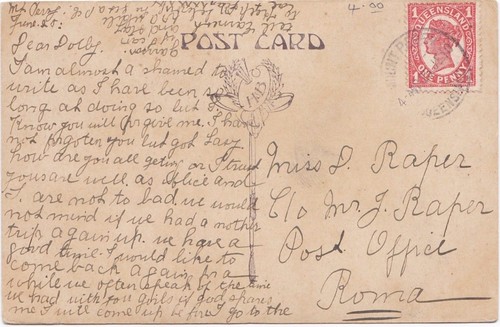 Mt Perry
June 20
Dear Dolly.
I am almost a shamed to
write as I have been so
long at doing so but I
Know you will forgive me. I have
not forgoten you but got Lasy
how are you all geting or I trust
you are well, as Alice and
I. are not to bad. we would
not mind if we had a nother
trip again up. we have a
good time. I would like to
come back again for a
while we often speak of the time
we had with you girls if god spares
me I will come up be fore I go to the
POST CARD
4-00
QUEENSLAND
ONE PENNY
1 1
MOUNT PERRY
QUEENSLAND
Miss D. Raper
C/o Mr J. Raper
Post Office
Roma